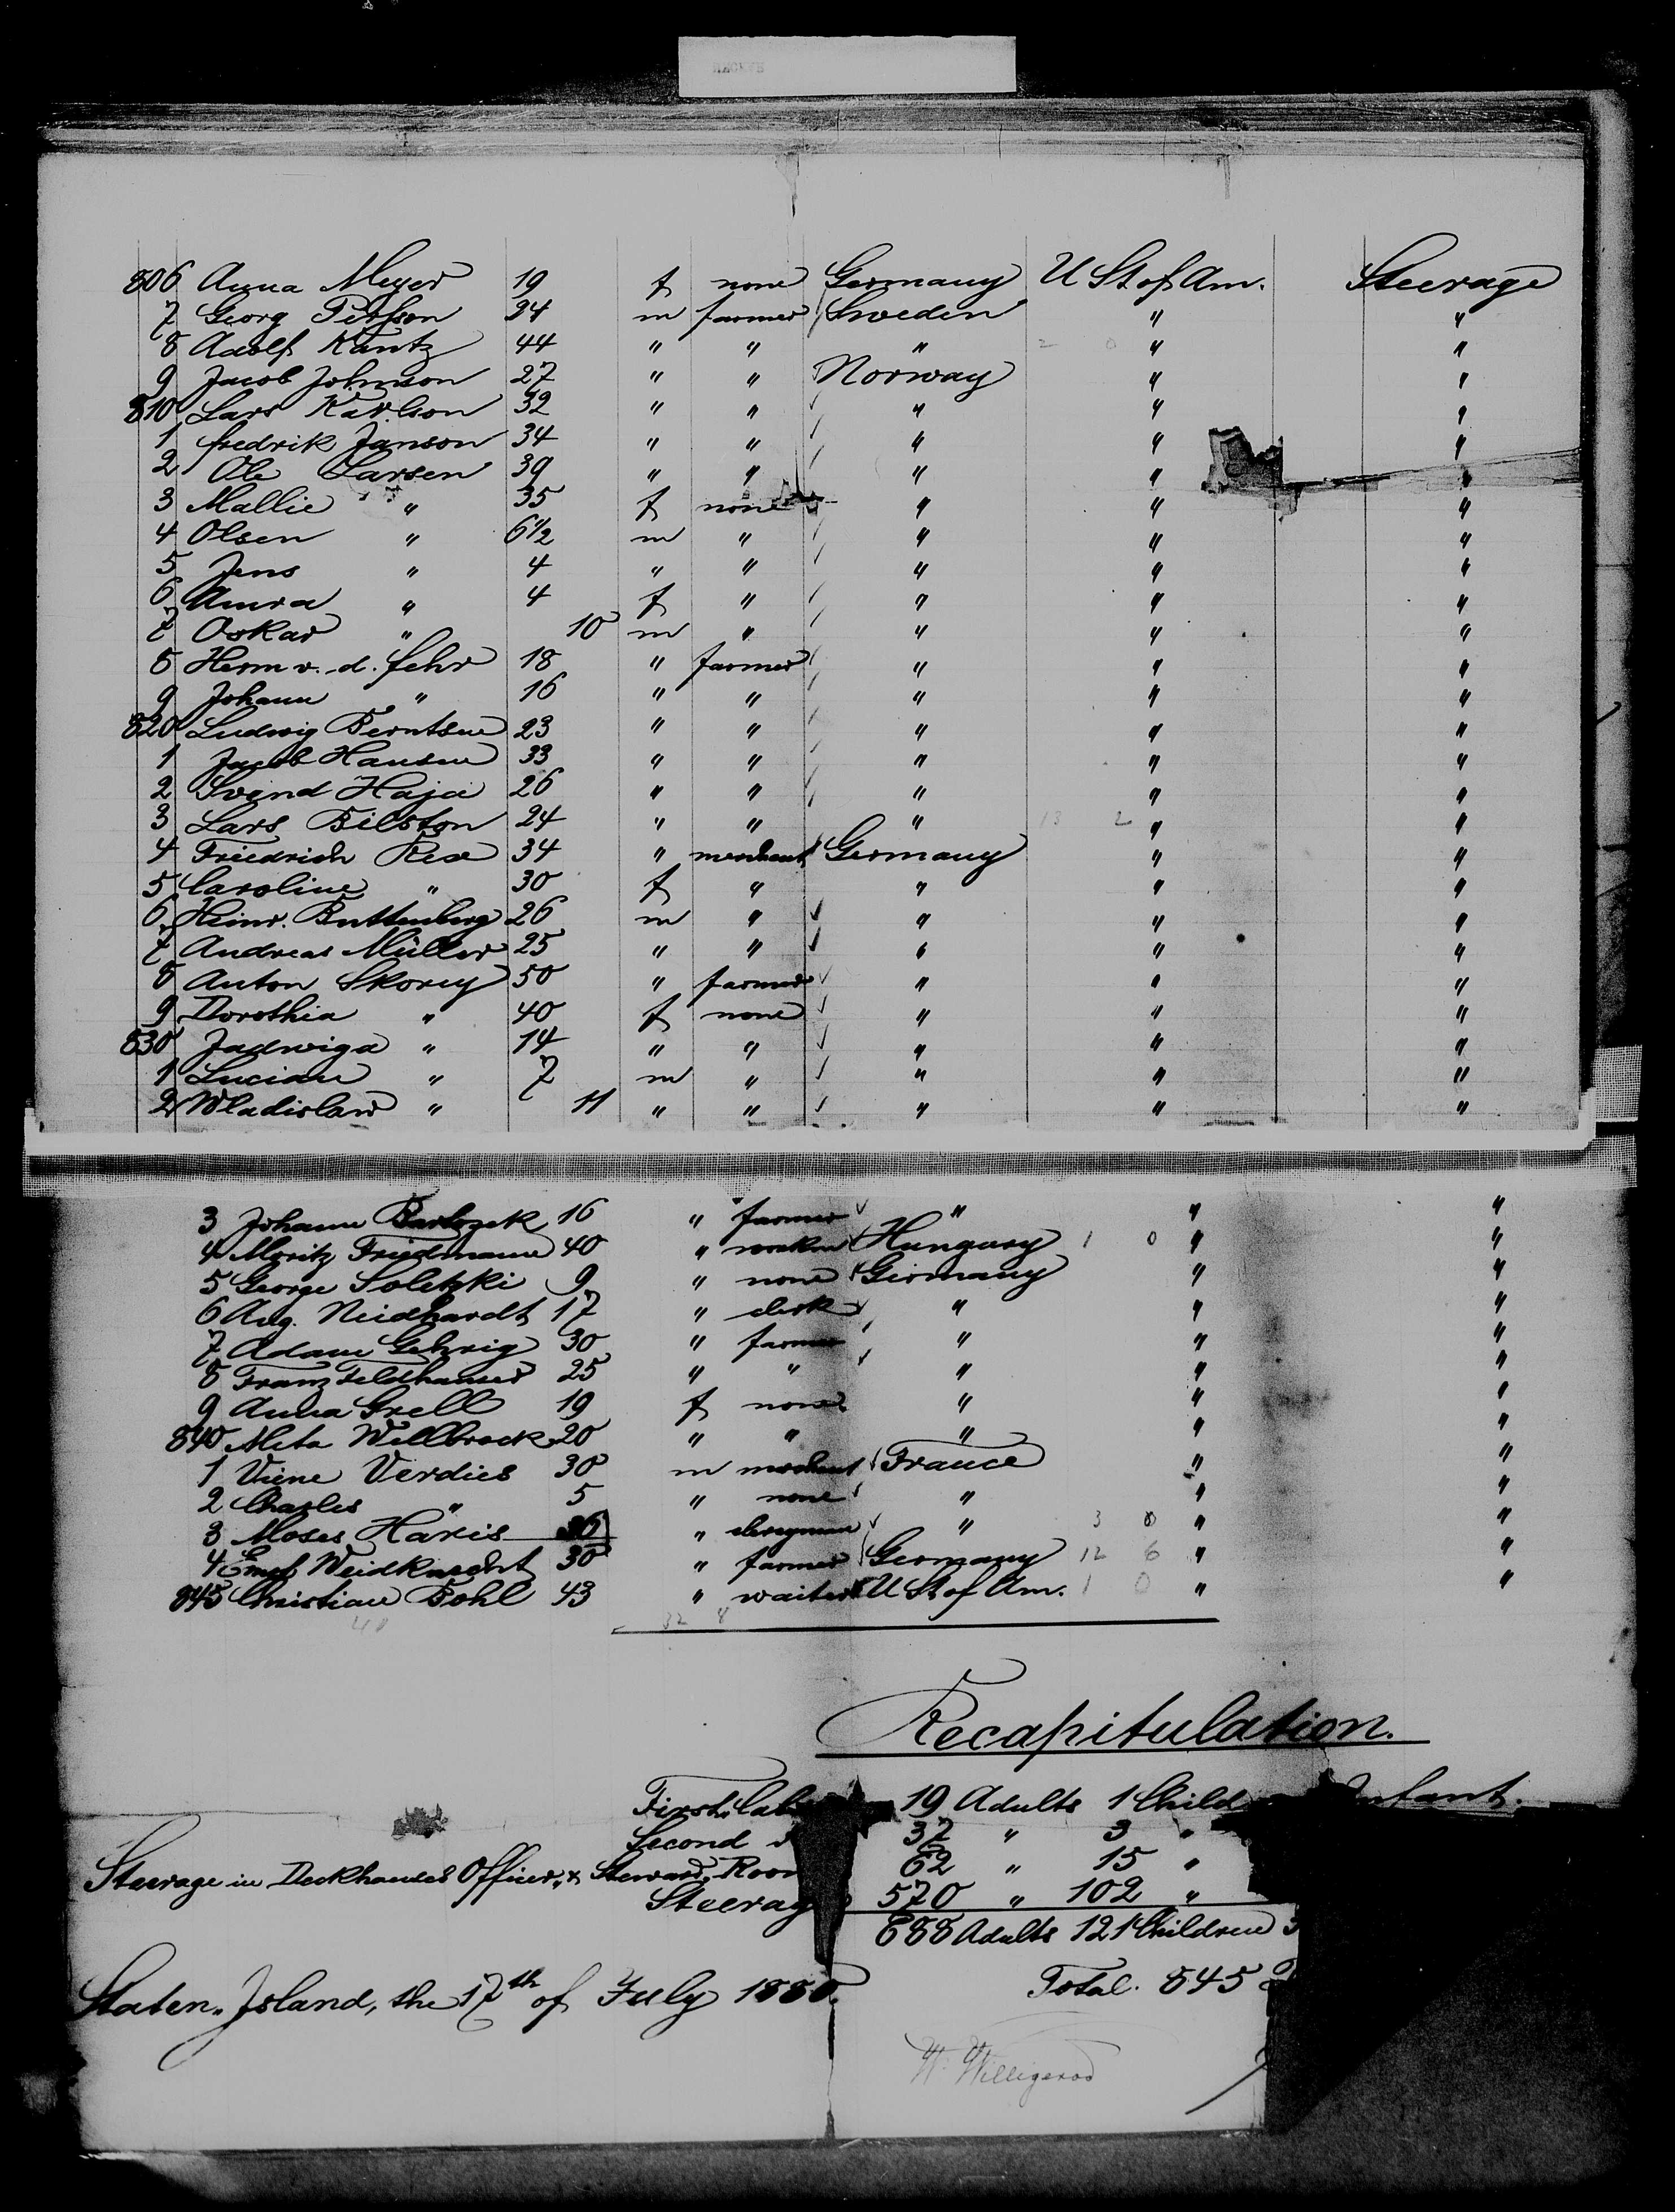 806 Anna Meyer 19 f none Germany U St of Am. Steerage
7 Georg Persson 34 m farmer Sweden " "
8 Adolf Kantz 44 " " " 2 0 " "
9 Jacob Johnson 27 " " Norway " "
810 Lars Karlson 32 " " " " "
1 fredrik Janson 34 " " " " "
2 Ole Larsen 39 " " " " "
3 Mallie " 35 f none " " "
4 Olsen " 6 1/2 m " " " "
5 Jens " 4 " " " " "
6 " 4 f " " " "
7 Oskar " 10 m " " " "
8 Herm v. d. fehr 18 " farmer " " "
9 Johann " 16 " " " " "
820 Ludwig Berntsen 23 " " " " "
1 Jacob Hansen 33 " " " " "
2 Svend Haja 26 " " " " "
3 Lars Bilston 24 " " " 13 2 " "
4 Friedrich Rex 34 " merchant Germany " "
5 Caroline " 30 f " " " "
6 Heinr. Buttenberg 26 m " " " "
7 Andreas Müller 25 " " " " "
8 Anton Skorey 50 " farmer " " "
9 Dorothia " 40 f none " " "
830 Jadwiga " 14 " " " " "
1 Lucian " 7 m " " " "
2 Wladislaw " 11 " " " " "
3 Johann 16 " farmer " " "
4 Moritz Friedmann 40 " Hungary 1 0 " "
5 George Soletzki 9 " none Germany " "
6 Aug. Neidhardt 17 " clerk " " "
7 Adam Gehrig 30 " farmer " " "
8 Franz Feldhauser 25 " " " " "
9 Anna Grell 19 f none " " "
840 Meta Wellbrock 20 " " " " "
1 Viene Verdies 30 m merchant France " "
2 Charles " 5 " none " " "
3 Moses Haris 36 " clergyman " 3 0 " "
4 Weidknecht 30 " farmer Germany 12 6 " "
845 Christian Pohl 43 " waiter U St of Am. 1 0 " "
40 32 8
Recapitulation.
First Cab 19 Adults 1 Child Infant.
Second 37 " 3 "
Steerage in Deckhouses Officer's & Steward's Room 62 " 15 "
Steerage 570 " 102 "
688 Adults 121 Children 3
Total. 845
Staten Island, the 17th of July 1880.
W. Willigerod